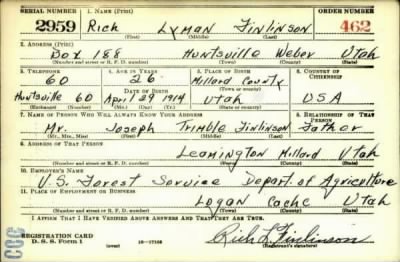 SERIAL NUMBER 1. NAME (Print) ORDER NUMBER
2959 Rich Lyman Finlinson 462
(First) (Middle) (Last)
2. ADDRESS (Print)
Box 188 Huntsville Weber Utah
(Number and street or R. F. D. number) (Town) (County) (State)
3. TELEPHONE 4. AGE IN YEARS 5. PLACE OF BIRTH 6. COUNTRY OF CITIZENSHIP
60 26 Millard County
DATE OF BIRTH (Town or county)
Huntsville 60 April 29 1914 Utah USA
(Exchange) (Number) (Mo.) (Day) (Yr.) (State or country)
7. NAME OF PERSON WHO WILL ALWAYS KNOW YOUR ADDRESS 8. RELATIONSHIP OF THAT PERSON
Mr. Joseph Trimble Finlinson Father
(Mr., Mrs., Miss) (First) (Middle) (Last)
9. ADDRESS OF THAT PERSON
Leamington Millard Utah
(Number and street or R. F. D. number) (Town) (County) (State)
10. EMPLOYER'S NAME
U.S. Forest Service Depart. of Agriculture
11. PLACE OF EMPLOYMENT OR BUSINESS
Logan Cache Utah
(Number and street or R. F. D. number) (Town) (County) (State)
I AFFIRM THAT I HAVE VERIFIED ABOVE ANSWERS AND THAT THEY ARE TRUE.
REGISTRATION CARD
D. S. S. Form 1 (over) 16-17105 Rich L Finlinson
(Registrant's signature)
CCC